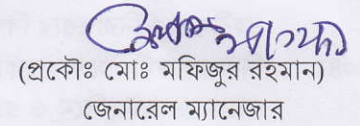 (প্রকৌঃ মোঃ মফিজুর রহমান)
জেনারেল ম্যানেজার